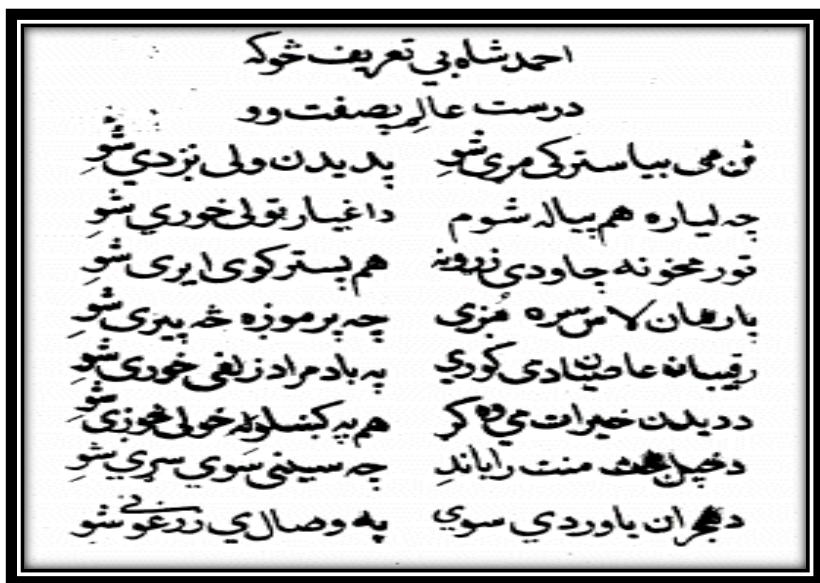 احمد شاه يې تعريف څوکه
درست عالم په صفت وو
نن می بیا سترکی مړی شو پدیدن ولی نزدی شو
چه لیاره هم پیاله شوم د اغیار تولی خوري شو
تور مخونه چاودی زړونه هم پستر کوی ایری شو
یاران لاس سره مږی چه پر موزه څه پیزی شو
رقیبان عاصیان دی کوري په باد مراد زلفی خوری شو
د دیدن خیرات می وکر هم په کښلو خولی شو
د خپل بخت منت راباند چه سینی سوي سړي شو
د هجران یاوردي سوي په وصال ي زرغوني شو